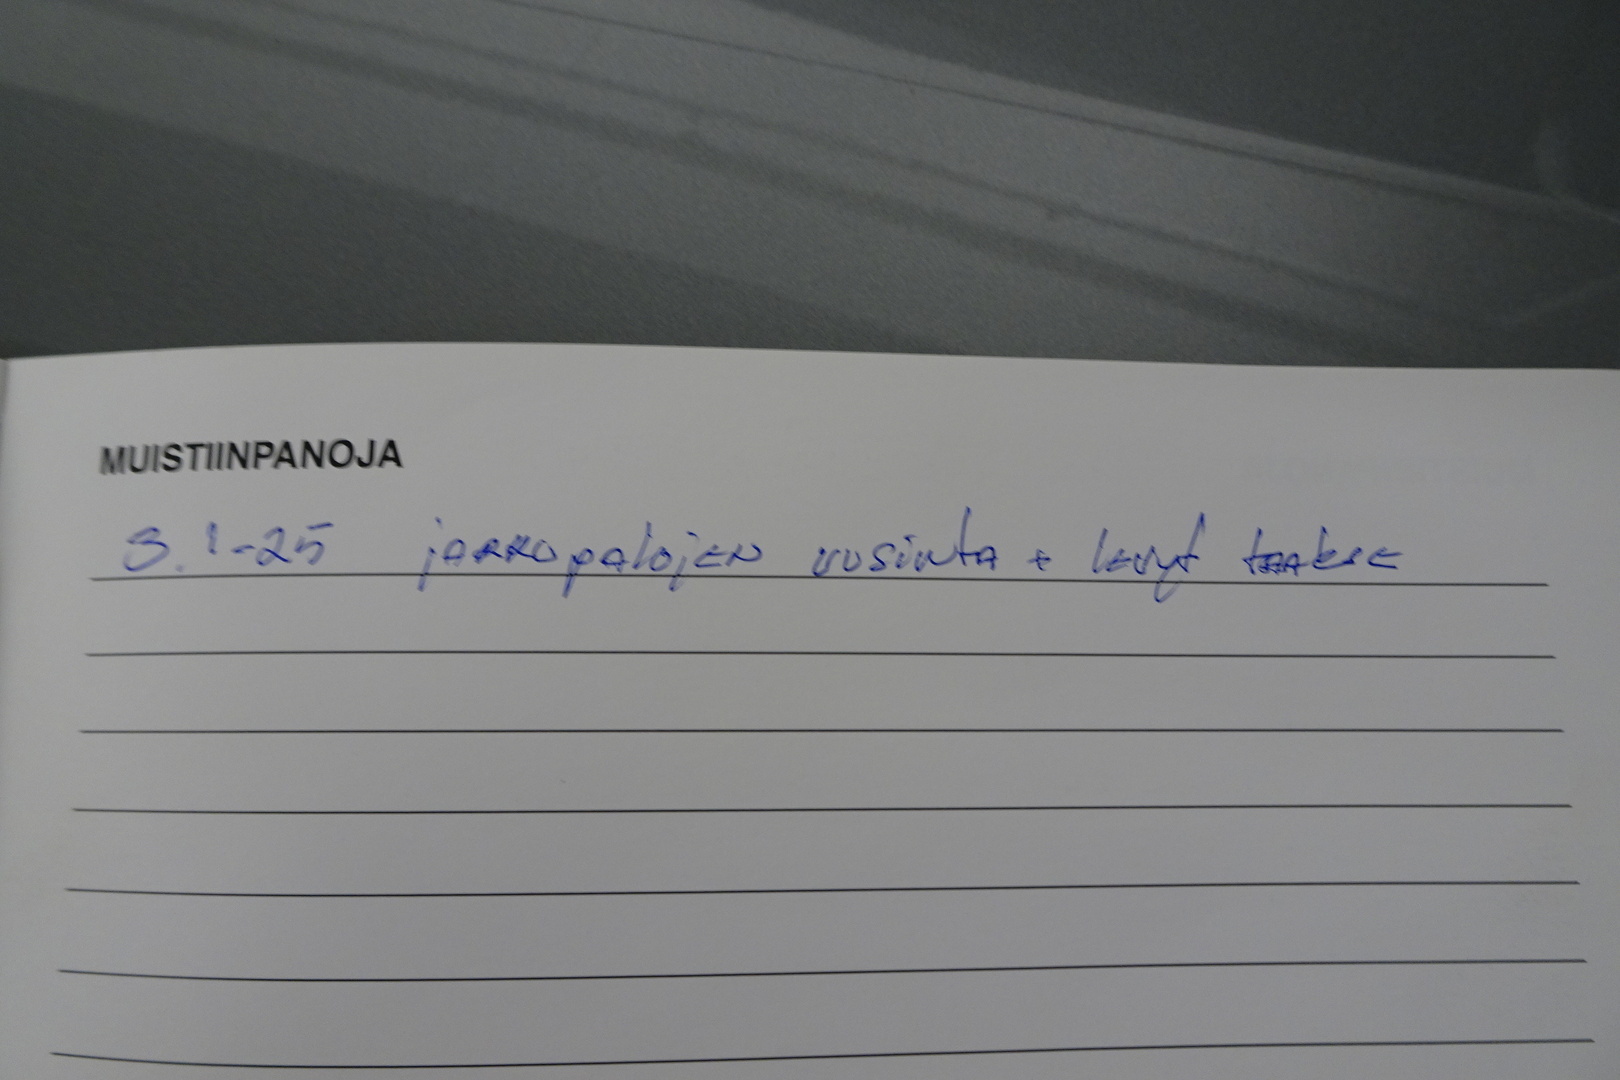 MUISTIINPANOJA
3.1-25 jarrupalojen uusinta + levyt taakse